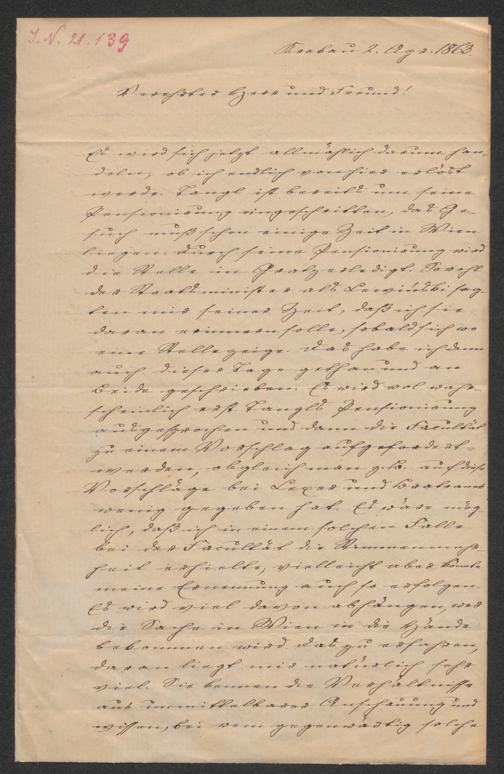 J. N. 21.139
Krakau 2. Apr. 1863.
Verehrter Herr und Freund!
Es wird sich jetzt allmählich darum han-
deln, ob ich endlich von hier erlöst
werde. Tangl ist bereits um seine
Pensionirung eingeschritten, das Ge-
such muß schon einige Zeit in Wien
liegen. Durch seine Pensionirung wird
die Stelle in Gratz erledigt. Sowohl
der Staatsminister als Lewinski sag-
ten mir seiner Zeit, daß ich sie
daran erinnern solle, sobald sich wo
eine Stelle zeige. Das habe ich denn
auch dieser Tage gethan und an
beide geschrieben. Es wird wol wahr-
scheinlich erst Tangls Pensionirung
ausgesprochen und dann die Facultät
zu einem Vorschlag aufgefordert
werden, obgleich man z.B. auf die
Vorschläge bei Lexer und
wenig gegeben hat. Es wäre mög-
lich, daß ich in einem solchen Falle
bei der Facultät die Stimmenmehr-
heit erhielte, vielleicht aber könnte
meine Ernennung auch so erfolgen.
Es wird viel davon abhängen, wer
die Sache in Wien in die Hände
bekommen wird. Das zu erfahren,
daran liegt mir natürlich sehr
viel. Sie kennen die Verhältnisse
aus unmittelbarer Anschauung und
wissen, bei wem gegenwärtig solche